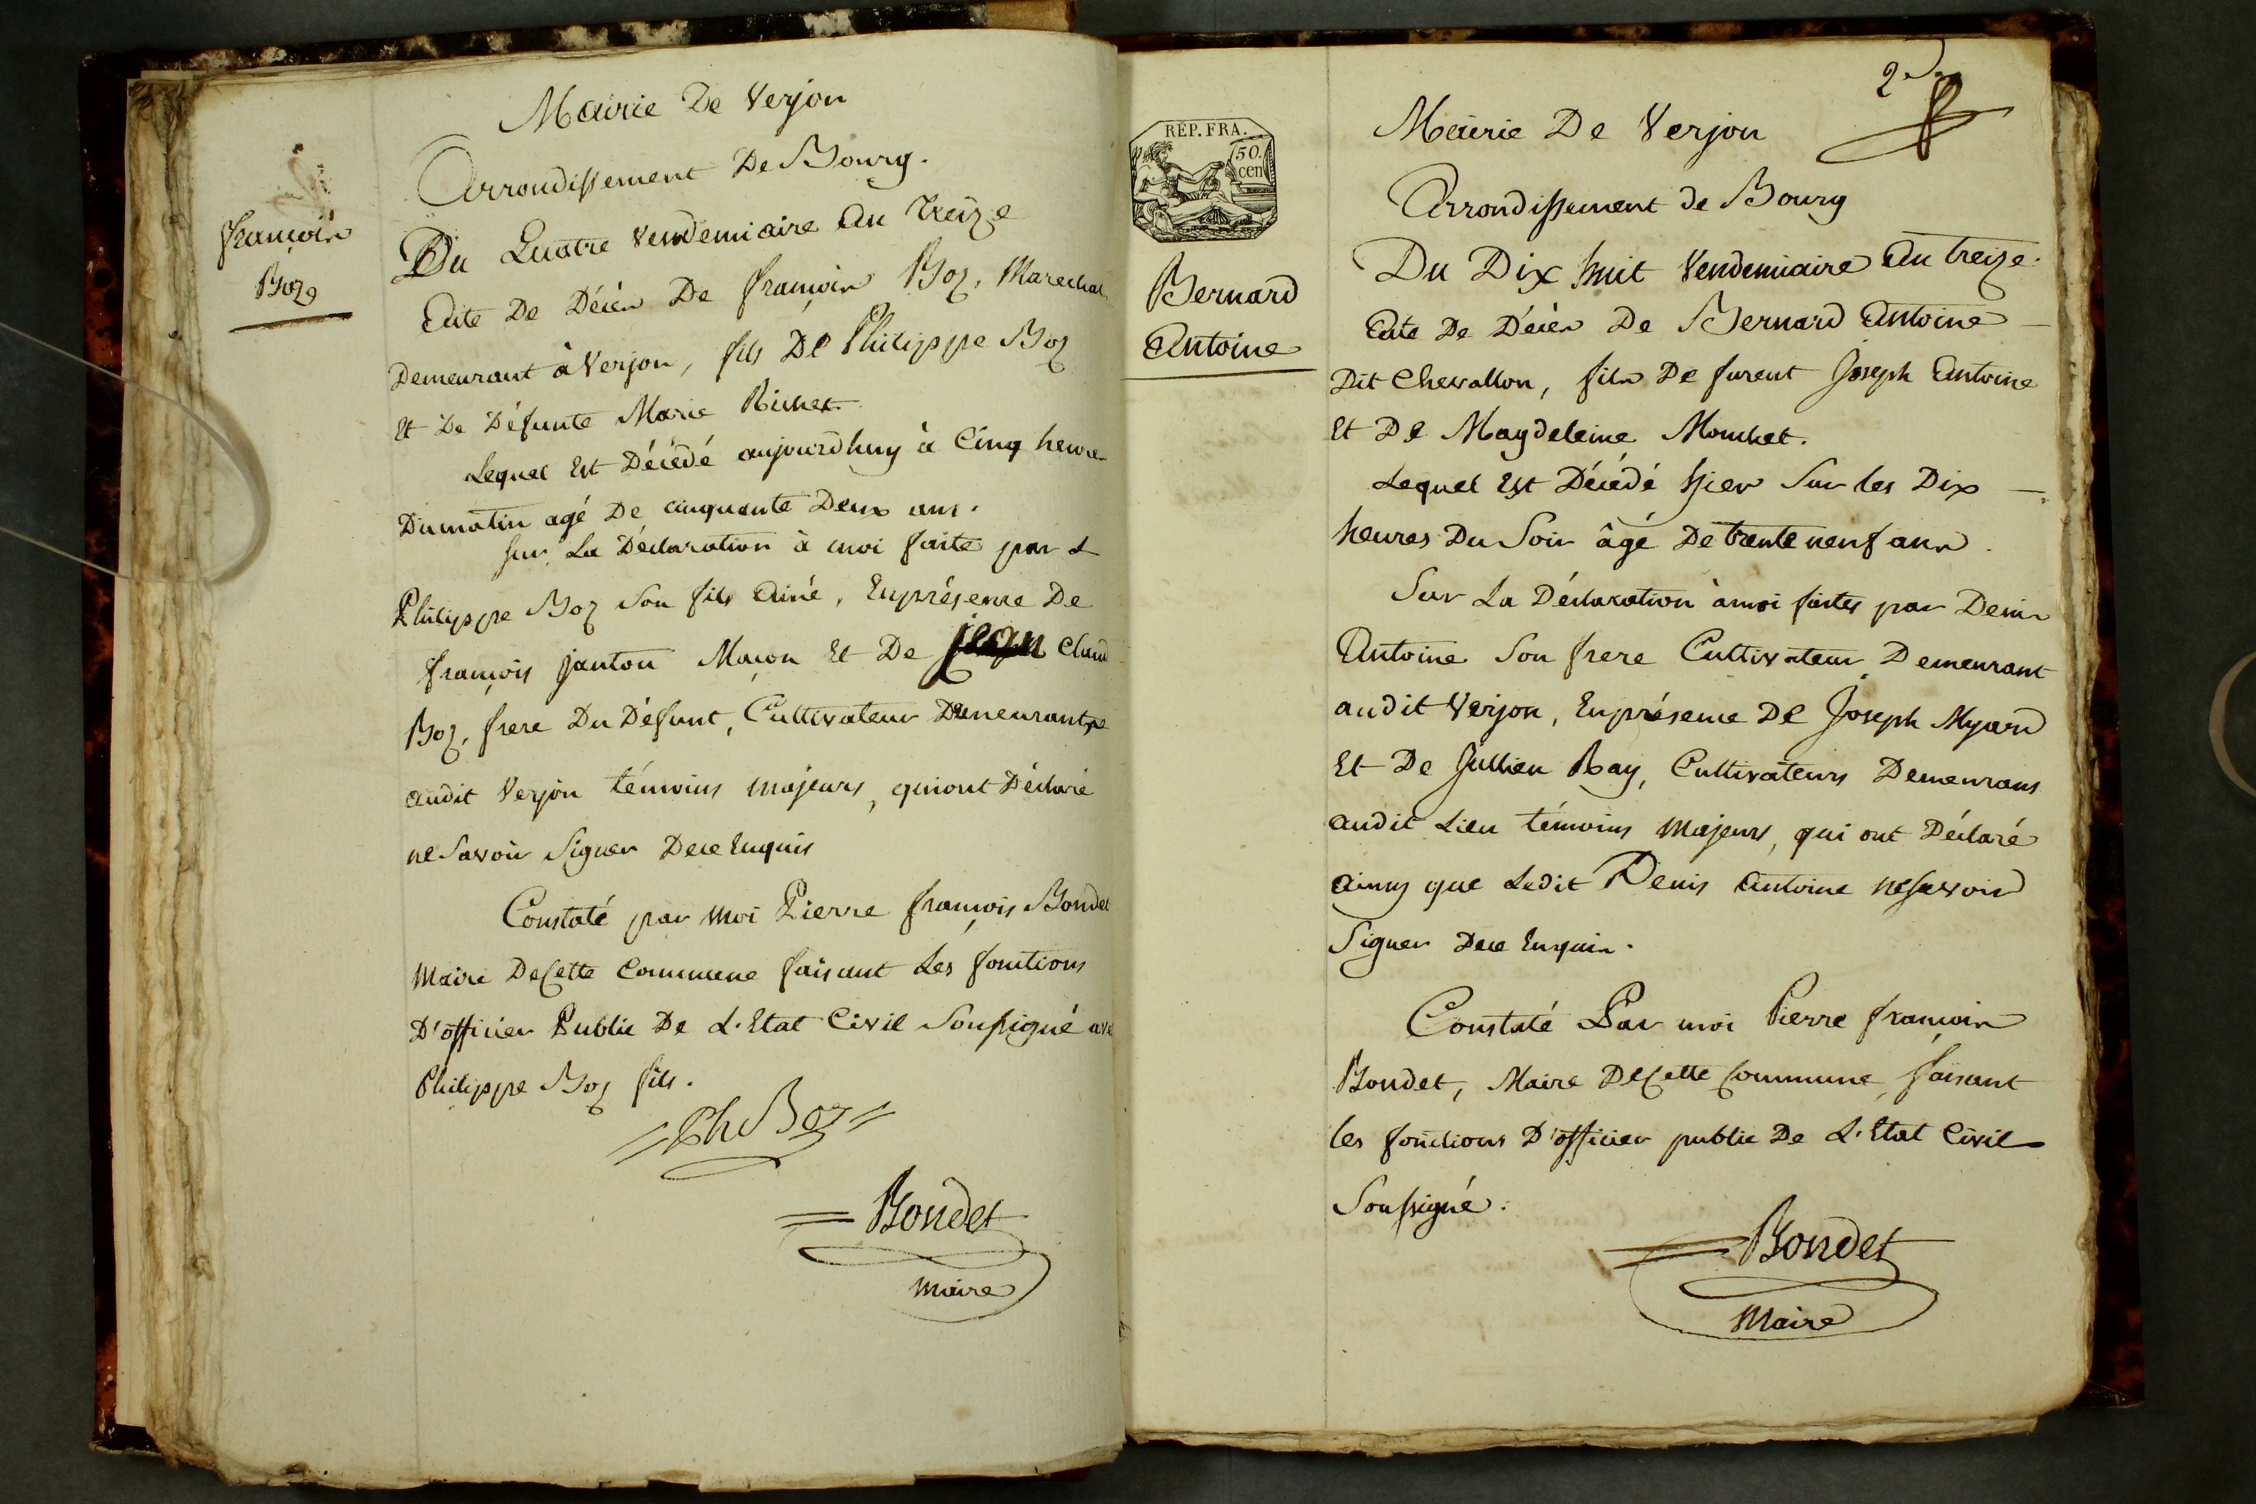 françois
Boz
Mairie De Verjon
Arrondissement De Bourg.
Du Quatre Vendemiaire an treize
Acte De Décès De françois Boz, Marechal,
Demeurant à Verjon, fils De Philippe Boz
Et De Défunte Marie Richet.
Lequel Est Décédé aujourd'huy à Cinq heures
Du matin agé De cinquante Deux ans.
Sur La Déclaration à moi faite par
Philippe Boz Son fils Ainé, En présence De
françois janton Maçon Et De jean Claud
Boz, frere Du Défunt, Cultivateur Demeurant
audit Verjon témoins majeurs, qui ont Déclaré
ne Savoir Signer De ce Enquis
Constaté par moi Pierre françois Bondet
Maire De Cette Commune faisant Les fonctions
D'officier Public De L'Etat Civil Soussigné avec
Philippe Boz fils.
Ph Boz
Bondet
maire
2e
REP. FRA.
50.
cen
Bernard
Antoine
Mairie De Verjon
Arrondissement de Bourg
Du Dix huit Vendemiaire An treize.
Acte De Décès De Bernard Antoine
Dit Chevallon, fils De furent Joseph Antoine
Et De Magdeleine Mouchet.
Lequel Est Décédé hier Sur les Dix
heures Du Soir âgé De trente neuf ans.
Sur La Déclaration à moi faites par Denis
Antoine Son frere Cultivateur Demeurant
audit Verjon, En présence De Joseph Myard
Et De Jullien Ray, Cultivateurs Demeurans
audit Lieu témoins Majeurs, qui ont Déclaré
ainsy que Ledit Denis Antoine ne Savoir
Signer De ce Enquis.
Constaté Par moi Pierre françois
Bondet, Maire De Cette Commune, faisant
les fonctions D'officier public De L'Etat Civil
Soussigné.
Bondet
Maire